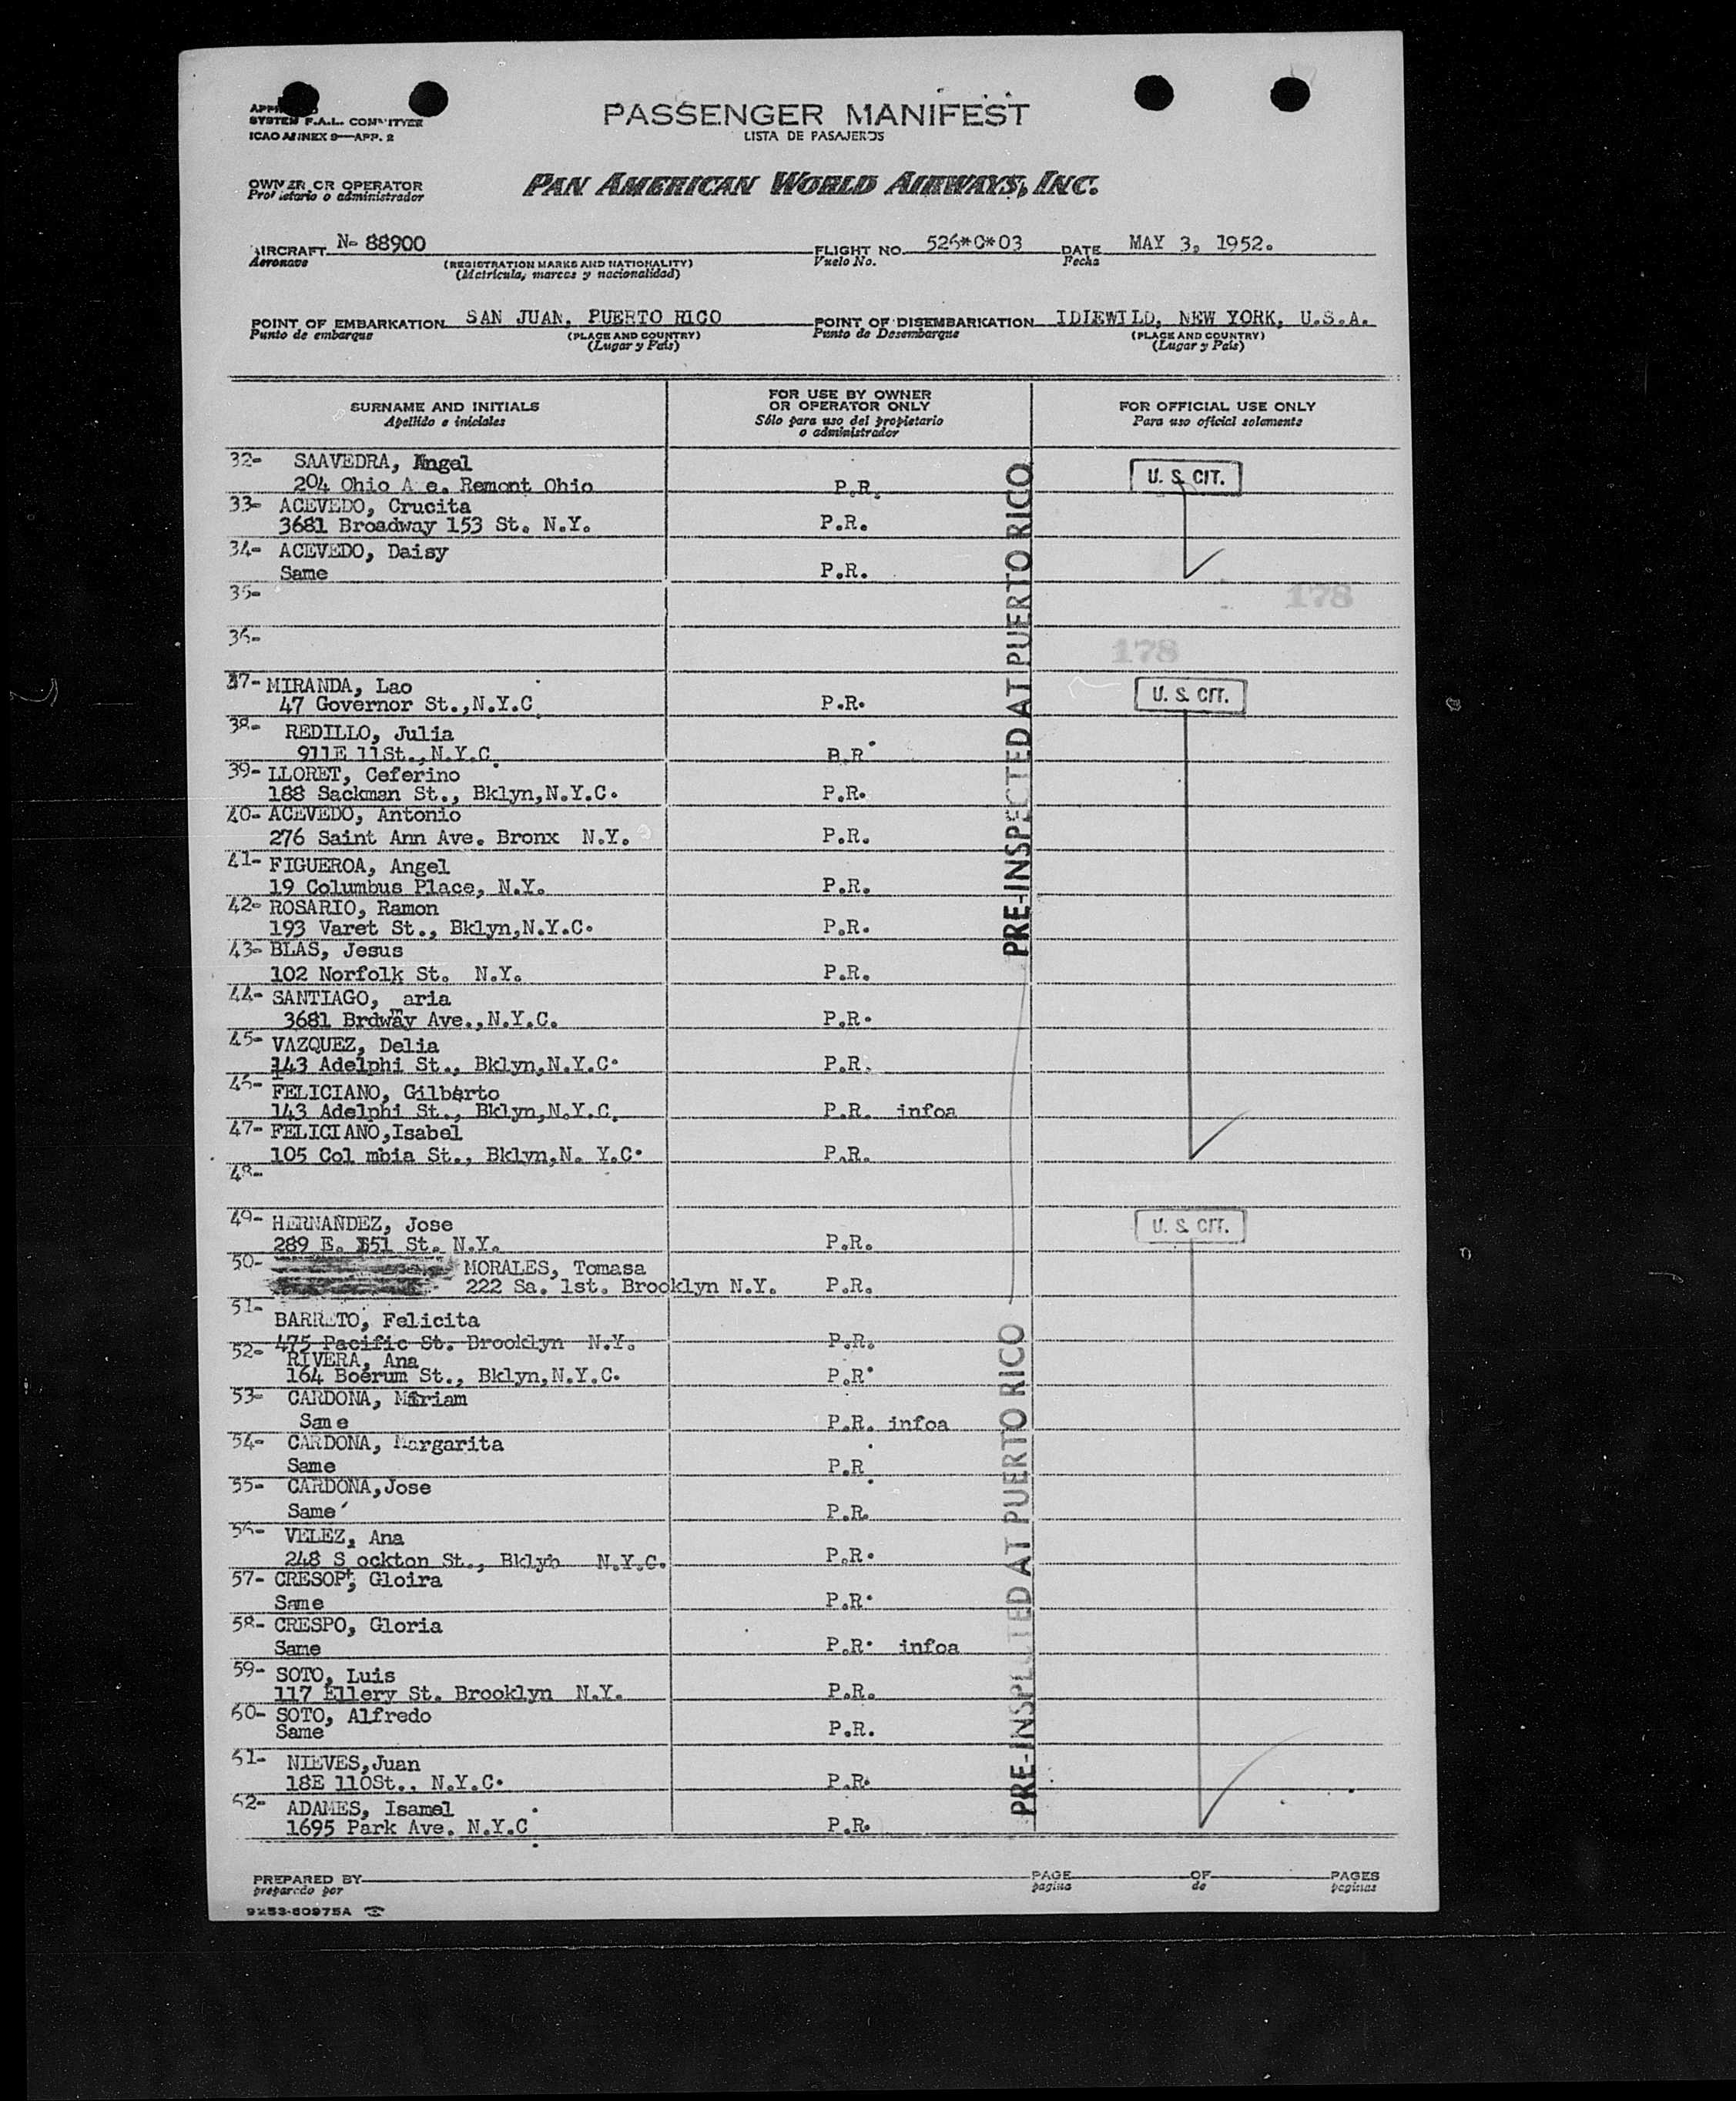 PASSENGER MANIFEST
LISTA DE PASAJEROS
SYSTEM F.A.L. COMMITTEE
ICAO ANNEX 9—APP. 2
OWNER OR OPERATOR
Propietario o administrador
PAN AMERICAN WORLD AIRWAYS, INC.
AIRCRAFT N- 88900 FLIGHT NO. 526*C*03 DATE MAY 3, 1952.
Aeronave (REGISTRATION MARKS AND NATIONALITY) Vuelo No. Fecha
(Matricula, marcas y nacionalidad)
POINT OF EMBARKATION SAN JUAN, PUERTO RICO POINT OF DISEMBARKATION IDIEWILD, NEW YORK, U.S.A.
Punto de embarque (PLACE AND COUNTRY) Punto de Desembarque (PLACE AND COUNTRY)
(Lugar y País) (Lugar y País)
SURNAME AND INITIALS
Apellido e iniciales
FOR USE BY OWNER
OR OPERATOR ONLY
Sólo para uso del propietario
o administrador
FOR OFFICIAL USE ONLY
Para uso oficial solamente
32- SAAVEDRA, Angel U. S. CIT.
204 Ohio A e. Remont Ohio P.R.
33- ACEVEDO, Crucita
3681 Broadway 153 St. N.Y. P.R.
34- ACEVEDO, Daisy
Same P.R.
35- 178
36- 178
37- MIRANDA, Lao U. S. CIT.
47 Governor St.,N.Y.C. P.R.
38- REDILLO, Julia
911E 11St., N.Y.C. P.R.
39- LLORET, Ceferino
188 Sackman St., Bklyn,N.Y.C. P.R.
40- ACEVEDO, Antonio
276 Saint Ann Ave. Bronx N.Y. P.R.
41- FIGUEROA, Angel
19 Columbus Place, N.Y. P.R.
42- ROSARIO, Ramon
193 Varet St., Bklyn,N.Y.C. P.R.
43- BLAS, Jesus
102 Norfolk St. N.Y. P.R.
44- SANTIAGO, maria
3681 Brdway Ave.,N.Y.C. P.R.
45- VAZQUEZ, Delia
143 Adelphi St., Bklyn,N.Y.C. P.R.
46- FELICIANO, Gilberto
143 Adelphi St., Bklyn,N.Y.C. P.R. infoa
47- FELICIANO,Isabel
105 Col mbia St., Bklyn,N. Y.C. P.R.
48-
49- HERNANDEZ, Jose U. S. CIT.
289 E. 151 St. N.Y. P.R.
50- MORALES, Tomasa
222 Sa. 1st. Brooklyn N.Y. P.R.
51- BARRETO, Felicita
475 Pacific St. Brooklyn N.Y. P.R.
52- RIVERA, Ana
164 Boerum St., Bklyn,N.Y.C. P.R.
53- CARDONA, Miriam
Same P.R. infoa
54- CARDONA, Margarita
Same P.R.
55- CARDONA,Jose
Same P.R.
56- VELEZ, Ana
248 S ockton St., Bklyb N.Y.C. P.R.
57- CRESOP, Gloira
Same P.R.
58- CRESPO, Gloria
Same P.R. infoa
59- SOTO, Luis
117 Ellery St. Brooklyn N.Y. P.R.
60- SOTO, Alfredo
Same P.R.
61- NIEVES,Juan
18E 110St., N.Y.C. P.R.
62- ADAMES, Isamel
1695 Park Ave. N.Y.C. P.R.
PRE-INSPECTED AT PUERTO RICO
PRE-INSPECTED AT PUERTO RICO
PREPARED BY PAGE OF PAGES
preparado por pagina de paginas
9253-60975A